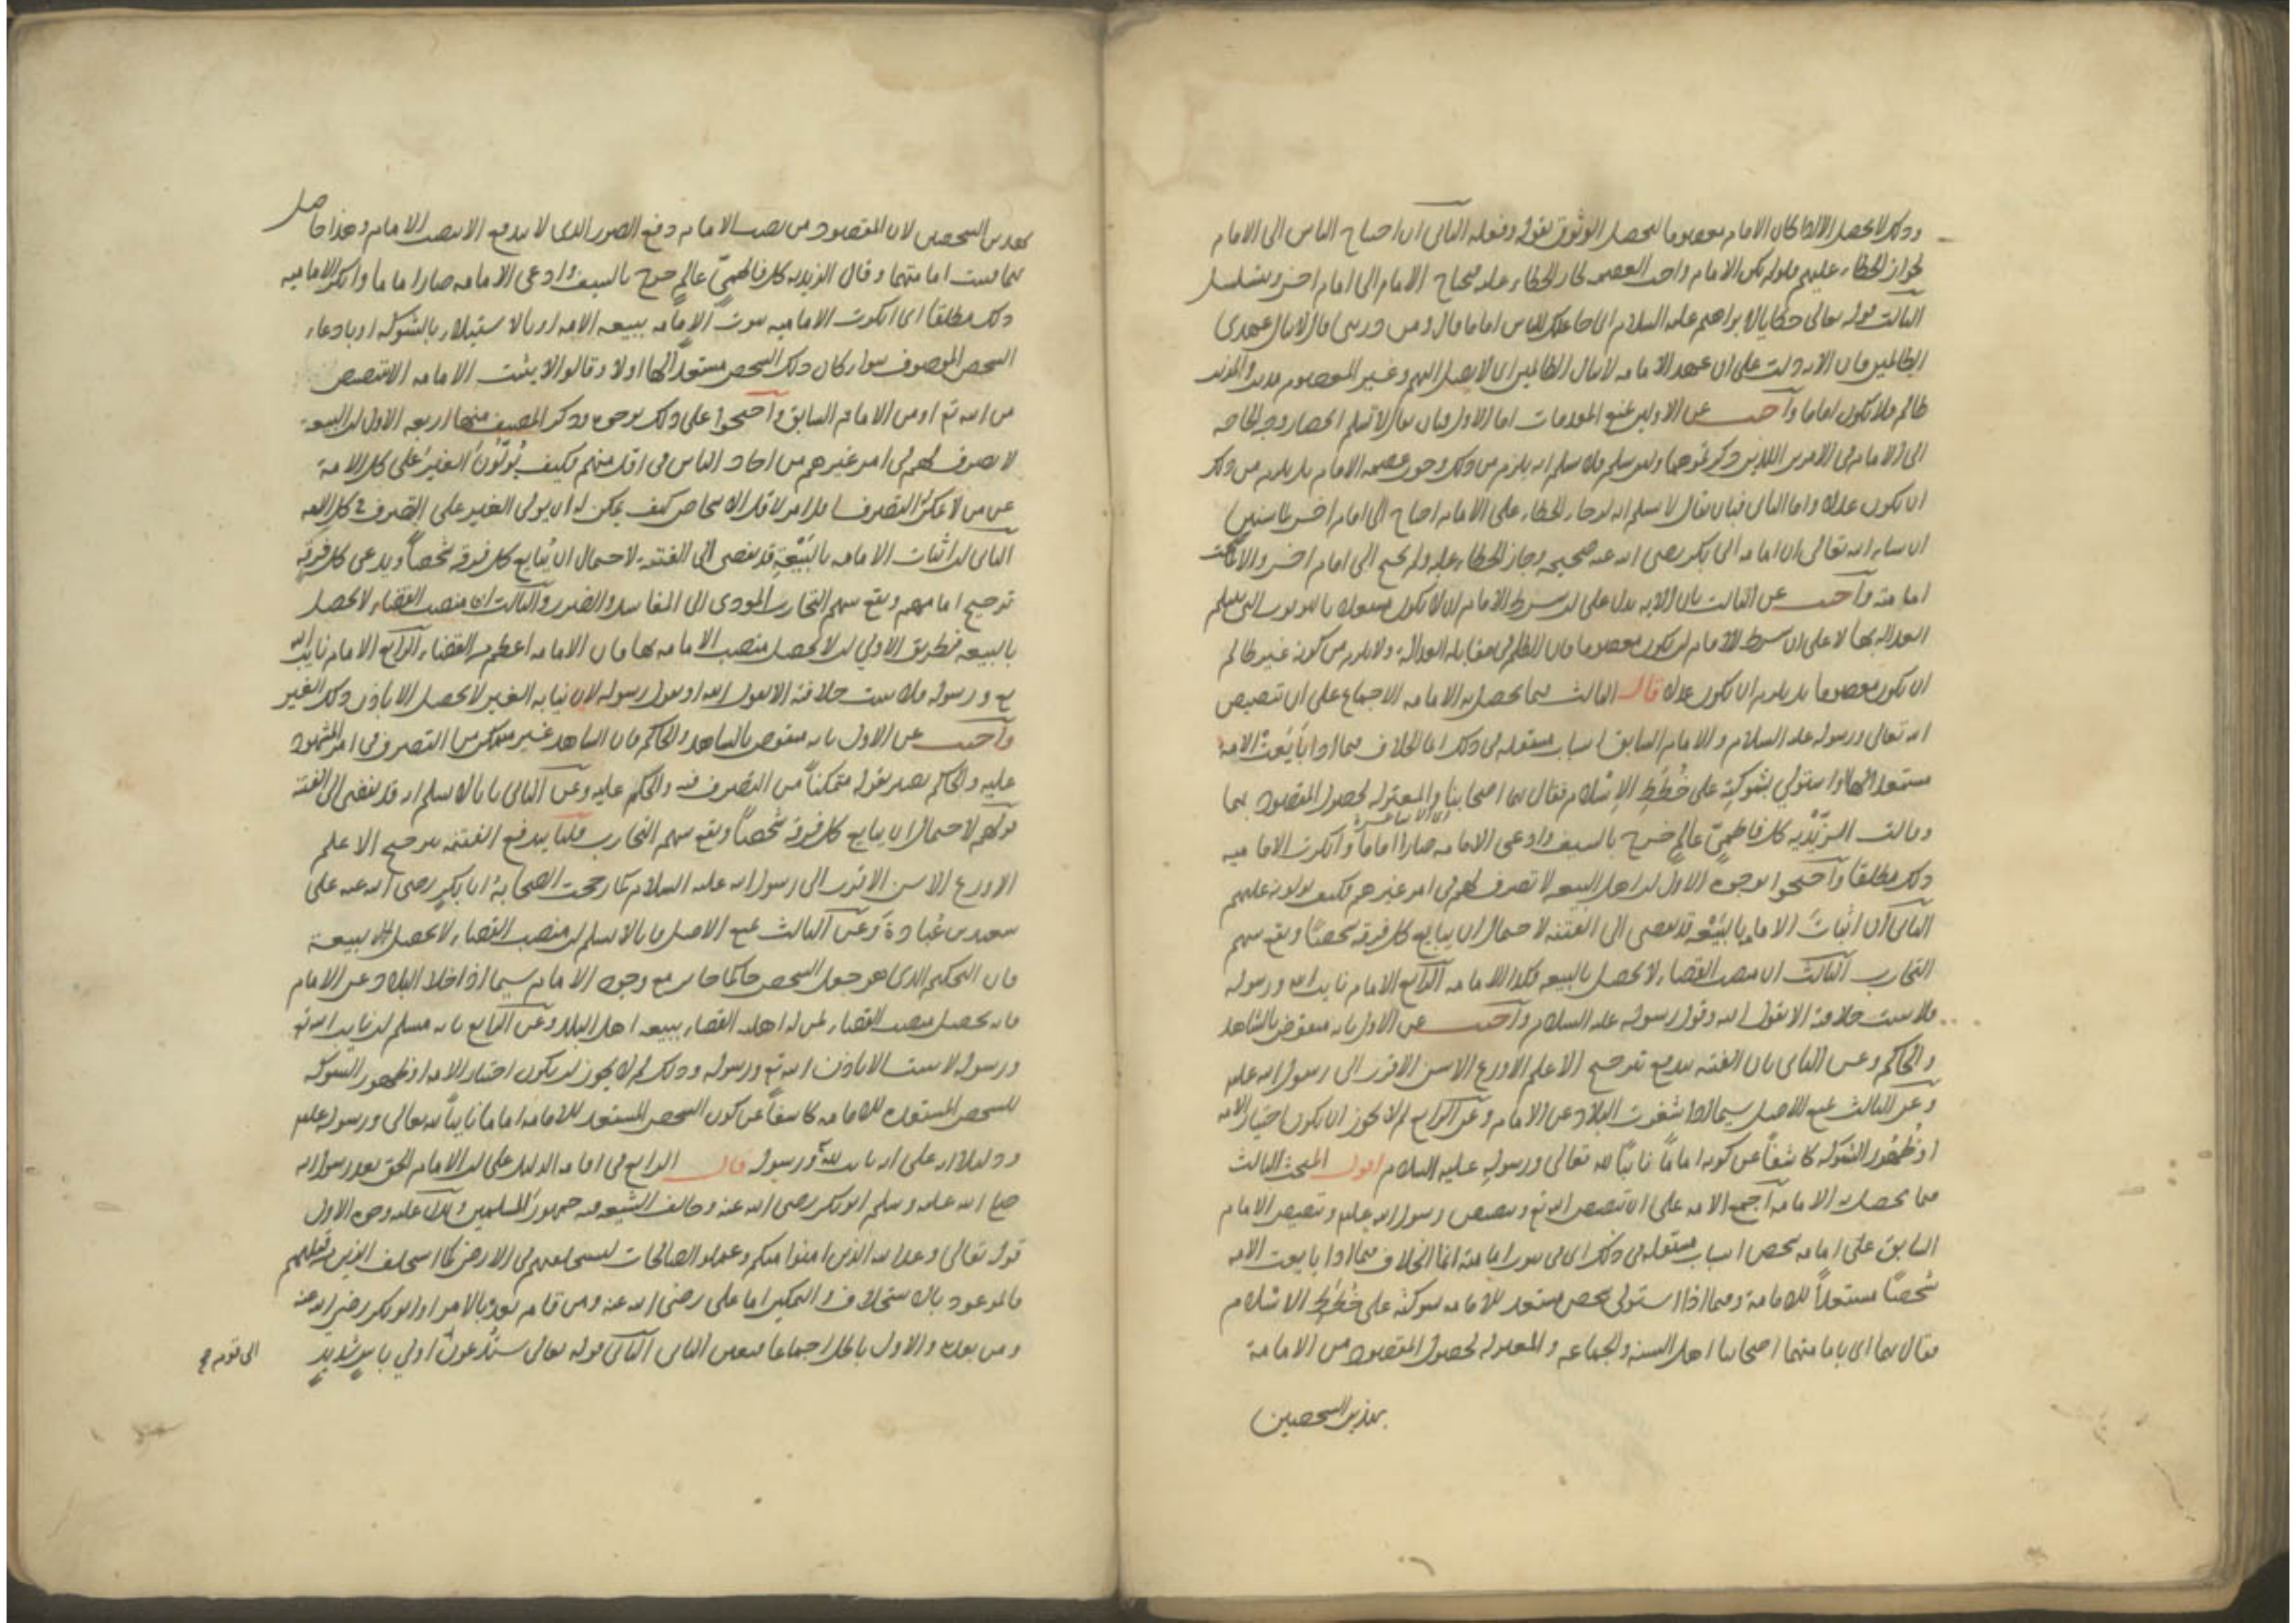 وذلك لا يحصل الا اذا كان الامام معصوما ليحصل الوثوق بقوله وفعله الثاني ان احتياج الناس الى الامام
لجواز الخطاء عليهم فلو لم يكن الامام واجب العصمه لجاز الخطاء عليه فيحتاج الامام الى امام اخر ويتسلسل
الثالث قوله تعالى حكاية لابراهيم عليه السلام انى جاعلك للناس اماما قال ومن ذريتى قال لا ينال عهدى
الظالمين فان الايه دلت على ان عهد الامامه لا ينال الظالمين اى لا يصل اليهم وغير المعصوم مذنب والمذنب
ظالم فلا يكون اماما واجيب عن الاولين بمنع المقدمات اما الاول فبان يقال لا نسلم انحصار وجه الحاجه
الى الامام فى الامرين اللذين ذكرتموهما ولئن سلم فلا نسلم انه يلزم من ذلك وجوب عصمه الامام بل يلزم من ذلك
ان يكون عدلا واما الثانى فبان يقال لا نسلم انه لو جاز الخطاء على الامام احتاج الى امام اخر لما سنبين
ان شاء الله تعالى ان امامه ابى بكر رضى الله عنه صحيحه وجاز الخطاء عليه ولم يحتج الى امام اخر والا لما صحت
امامته واجيب عن الثالث بان الايه تدل على ان شرط الامام ان لا يكون مشغولا بالذنوب التى تنثلم
العداله بها لا على ان شرط الامام ان يكون معصوما فان الظلم فى مقابله العداله ولا يلزم من كونه غير ظالم
ان يكون معصوما بل يلزم ان يكون عدلا قال الثالث فيما يحصل به الامامه الاجماع على ان تنصيص
الله تعالى ورسوله عليه السلام والامام السابق اسباب مستقله فى ذلك انما الخلاف فيما اذا بايعت الامه
مستعدا لها او استولى بشوكته على خطط الاسلام فقال بهما اصحابنا والمعتزله لحصول المقصود بهما
وقالت الزيديه كل فاطمى عالم خرج بالسيف وادعى الامامه صار اماما وانكرت الاماميه
ذلك مطلقا واحتجوا بوجوه الاول ان اهل البيعه لا تصرف لهم فى امر غيرهم فكيف يولونه عليهم
الثانى ان اثبات الامامه بالبيعه قد يفضى الى الفتنه لاحتمال ان يبايع كل فرقه شخصا ويقع بينهم
التحارب الثالث ان منصب القضاء لا يحصل بالبيعه فكذا الامامه الرابع الامام نايب الله ورسوله
فلا يثبت خلافته الا بقول الله وقول رسوله عليه السلام واجيب عن الاول بانه منقوض بالشاهد
والحاكم وعن الثانى بان الفتنه يندفع بترجيح الاعلم الاورع الاسن الاقرب الى رسول الله عليه
وعن الثالث بمنع الاصل سيما اذا شغرت البلاد عن الامام وعن الرابع لم لا يجوز ان يكون اختيار الامه
او ظهور الشوكه كاشفا عن كونه اماما نايبا لله تعالى ورسوله عليه السلام اقول المبحث الثالث
فيما يحصل به الامامه اجمع الامه على ان تنصيص الله تع وتنصيص رسول الله عليه وتنصيص الامام
السابق على امامه شخص اسباب مستقله فى ذلك اى فى ثبوت امامته انما الخلاف فيما اذا بايعت الامه
شخصا مستعدا للامامة وفيما اذا استولى شخص مستعد للامامه بشوكته على خطط الاسلام
فقال بهما اى بامامتهما اصحابنا اهل السنه والجماعه والمعتزله لحصول المقصود من الامامة
بهذين الشخصين
بهذين الشخصين لان المقصود من نصب الامام دفع الضرر الذى لا يندفع الا بنصب الامام وهذا حاصل
بهما فيثبت امامتهما وقال الزيديه كل فاطمى عالم خرج بالسيف وادعى الامامه صار اماما وانكر الاماميه
ذلك مطلقا اى انكرت الاماميه ثبوت الامامه ببيعه الامه او بالاستيلاء بالشوكه او بادعاء
الشخص الموصوف سواء كان ذلك الشخص مستعدا لها اولا وقالوا لا يثبت الامامه الا بتنصيص
من الله تع او من الامام السابق واحتجوا على ذلك بوجوه وذكر المصنف منها اربعه الاول ان البيعه
لا تصرف لهم فى امر غيرهم من احاد الناس فى اقل منهم فكيف يولون الغير على كل الامة
عن من لا يمكن التصرف فى اقل امر لاقل الاشخاص كيف يمكن له ان يولى الغير على التصرف فى كل الامه
الثانى ان اثبات الامامه بالبيعة قد يفضى الى الفتنه لاحتمال ان يبايع كل فرقه شخصا ويدعى كل فرقة
ترجيح امامهم ويقع بينهم التحارب المودى الى المفاسد والضرر والثالث ان منصب القضاء لا يحصل
بالبيعه فبطريق الاولى ان لا يحصل منصب الامامه بها فان الامامه اعظم من القضاء الرابع الامام نايب الله
تع ورسوله فلا يثبت خلافته الا بقول الله او بقول رسوله لان نيابه الغير لا يحصل الا باذن ذلك الغير
واجيب عن الاول بانه منقوض بالشاهد والحاكم فان الشاهد غير متمكن من التصرف فى امر المشهود
عليه والحاكم يصير بقوله متمكنا من التصرف فيه والحكم عليه وعن الثانى بانا لا نسلم انه قد يفضى الى الفتنه
قولهم لاحتمال ان يبايع كل فرقه شخصا ويقع بينهم التحارب قلنا يندفع الفتنه بترجيح الاعلم
الاورع الاسن الاقرب الى رسول الله عليه السلام كما رجحت الصحابة ابا بكر رضى الله عنه على
سعد بن عبادة وعن الثالث بمنع الاصل فانا لا نسلم ان منصب القضاء لا يحصل بالبيعة
فان التحكيم الذى هو جعل الشخص حاكما جايز مع وجود الامام سيما اذا خلا البلاد عن الامام
فانه يحصل منصب القضاء لمن له اهليه القضاء ببيعه اهل البلد وعن الرابع بانه مسلم انه نايب الله تع
ورسوله لا يثبت الا باذن الله تع ورسوله وذلك لم لا يجوز ان يكون اختيار الامه او ظهور الشوكه
للشخص المستعد للامامه كاشفا عن كون الشخص المستعد للامامه اماما نايبا لله تعالى ورسوله عليه
ودليلا دل على انه نايب لله ورسوله قال الرابع فى امامه الدليل على ان الامام الحق بعد رسول الله
صلع الله عليه وسلم ابو بكر رضى الله عنه وخالف الشيعه فيه جمهور المسلمين ويدل عليه وجوه الاول
قوله تعالى وعد الله الذين امنوا منكم وعملوا الصالحات ليستخلفنهم فى الارض كما استخلف الذين من قبلهم
فالموعود بالاستخلاف والتمكين اما على رضى الله عنه ومن قام بعده بالامر او ابو بكر رضى الله عنه
ومن بعده والاول باطل اجماعا فتعين الثانى الثانى قوله تعالى ستدعون اولى باس شديد
الى قوم